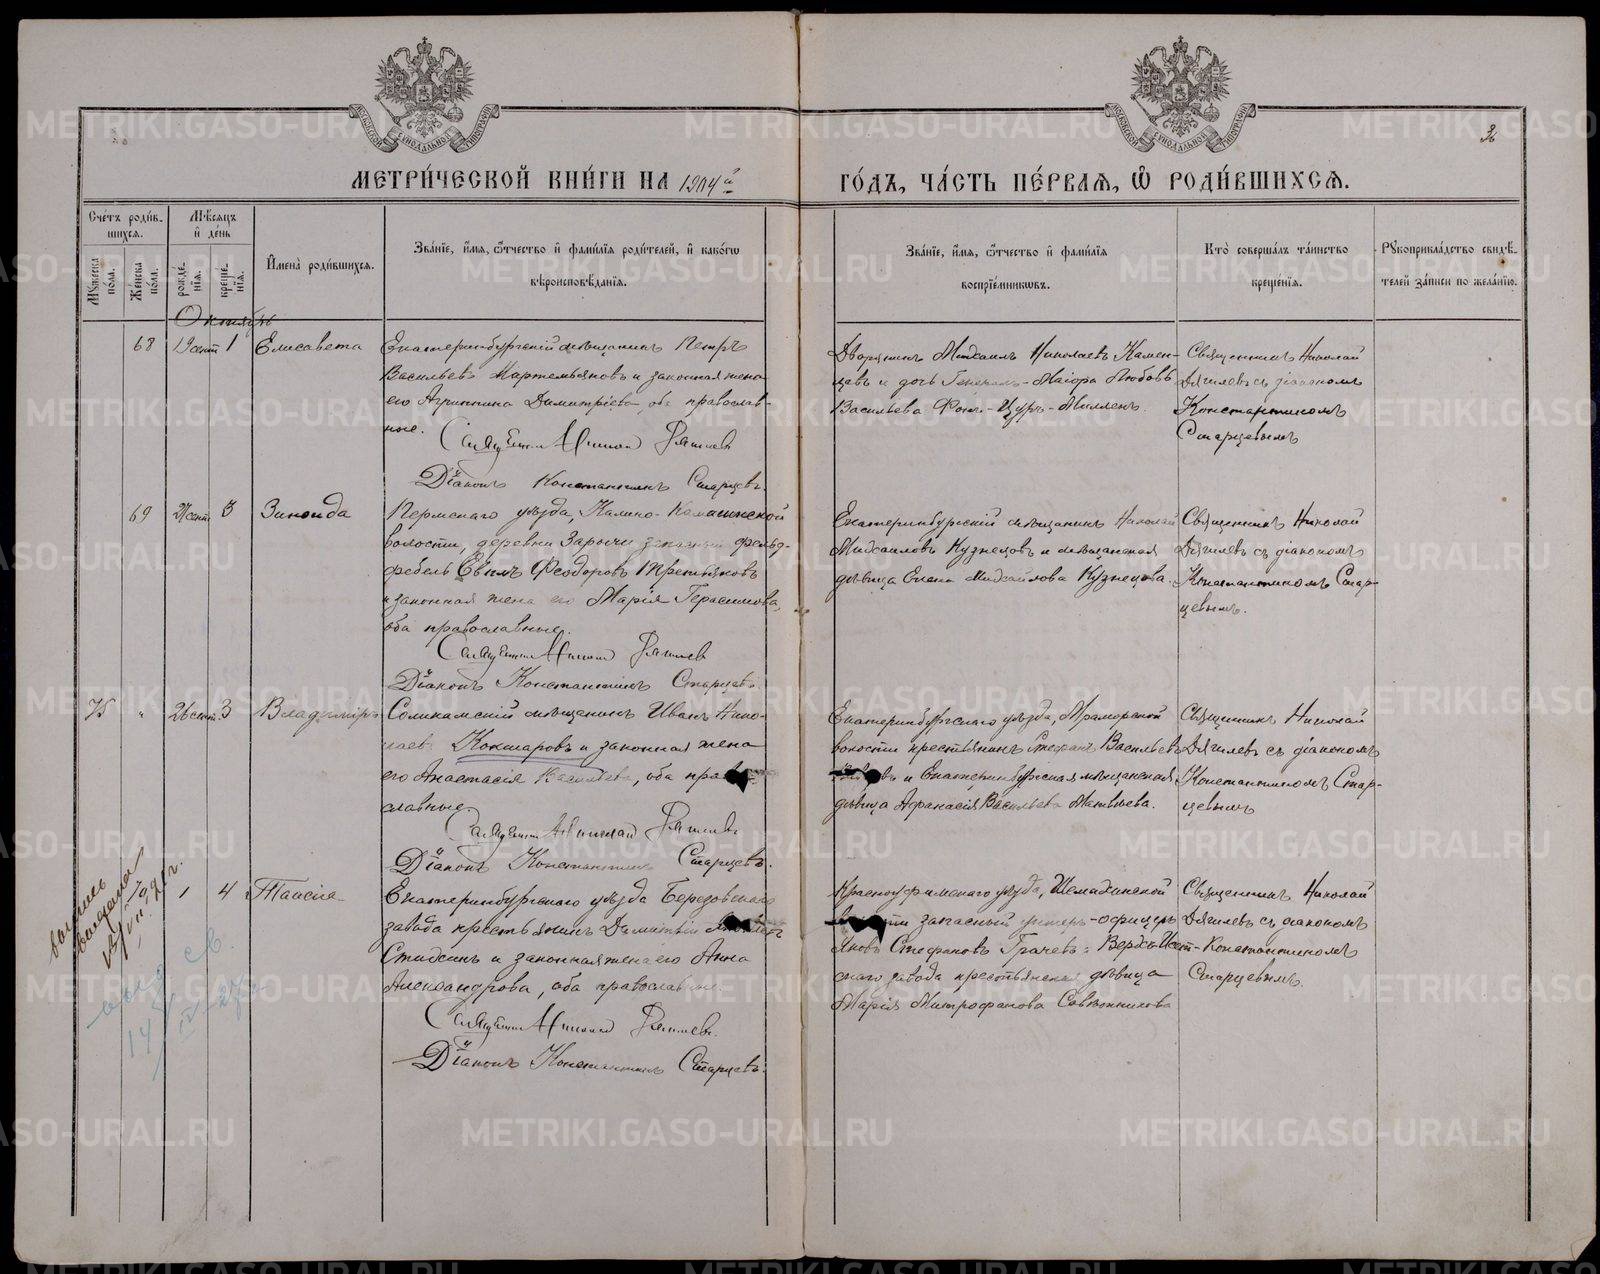 МЕТРИ́ЧЕСКОЙ КНИ́ГИ НА 1904й
ГО́ДЪ, ЧА́СТЬ ПЕ́РВАѦ, Ѡ РОДИ́ВШИХСѦ.
36
Сче́тъ роди́в-
шихсѧ.
Мꙋжеска по́ла.
Же́нска по́ла.
Мѣ́сѧцъ и де́нь
рожде́нїѧ.
креще́нїѧ.
Имена̀ роди́вшихсѧ.
Зва́нїе, и́мѧ, ѻ́тчество и фами́лїѧ роди́телей, и како́гѡ
вѣроисповѣ́данїѧ.
Зва́нїе, и́мѧ, ѻ́тчество и фами́лїѧ
воспрїе́мникѡвъ.
Кто̀ соверша́лъ та́инство
креще́нїѧ.
Рꙋкоприкла́дство свидѣ́-
телей за́писи по жела́нїю.
Октябрь
68 19 сент 1 Елисавета
Екатеринбургскій мѣщанинъ Петръ
Васильевъ Мартемьяновъ и законная жена
его Агриппина Димитріева, оба православ-
ные.
Священникъ Николай Дягилевъ
Діаконъ Константинъ Старцевъ.
Дворянинъ Михаилъ Николаевъ Камен-
цевъ и дочь Генералъ-Маіора Любовь
Васильева Фонъ-Цуръ-Милленъ.
Священникъ Николай
Дягилевъ съ діакономъ
Константиномъ
Старцевымъ
69 сент 3 Зинаида
Пермскаго уѣзда, Калино-Камасинской
волости, деревни запасный фельд-
фебель Феодоровъ Третьяковъ
и законная жена его Марія Герасимова,
оба православные.
Священникъ Николай Дягилевъ
Діаконъ Константинъ Старцевъ.
Екатеринбургскій мѣщанинъ Николай
Михаиловъ Кузнецовъ и мѣщанская
дѣвица Елена Михайлова Кузнецова.
Священникъ Николай
Дягилевъ съ діакономъ
Константиномъ Стар-
цевымъ.
75 " 26 сент. 3 Владиміръ
Соликамскій мѣщанинъ Иванъ Нико-
лаевъ Кокшаровъ и законная жена
его Анастасія Васильева, оба право-
славные.
Священникъ Николай Дягилевъ
Діаконъ Константинъ Старцевъ.
Екатеринбургскаго уѣзда, Мраморской
волости крестьянинъ Стефанъ Васильевъ
и Екатеринбургская мѣщанская
дѣвица Афанасія Васильева Матвѣева.
Священникъ Николай
Дягилевъ съ діакономъ
Константиномъ Стар-
цевымъ
1 4 Таисія
Екатеринбургскаго уѣзда Березовскаго
завода крестьянинъ Димитрій
и законная жена его Анна
Александрова, оба православные.
Священникъ Николай Дягилевъ.
Діаконъ Константинъ Старцевъ.
Красноуфимскаго уѣзда, Шемахинской
запасный унтеръ-офицеръ
Яковъ Стефановъ Грачевъ и Верхъ-Исет-
скаго завода крестьянская дѣвица
Марія Митрофанова
Священникъ Николай
Дягилевъ съ діакономъ
Константиномъ
Старцевымъ.
METRIKI.GASO-URAL.RU